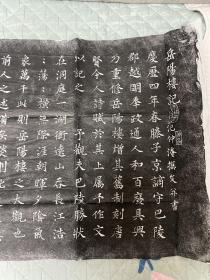 岳陽樓記 范仲淹撰 書
慶曆四年春滕子京謫守巴陵
郡越明年政通人和百廢具興
乃重修岳陽樓增其舊制刻唐
賢今人詩賦於其上屬予作文
以記之 予觀夫巴陵勝狀
在洞庭一湖銜遠山吞長江浩
〻湯〻橫無際涯朝暉夕陰氣
象萬千此則岳陽樓之大觀也
前人之述備矣然則